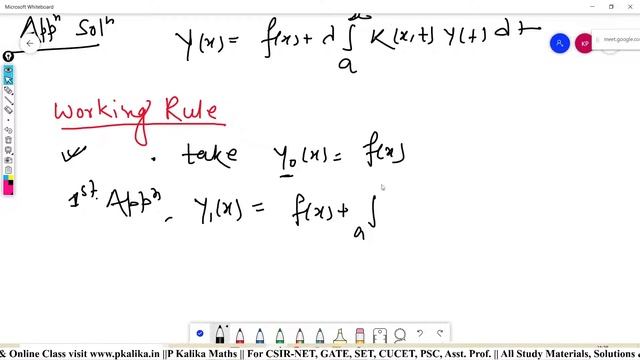 Microsoft Whiteboard
Appⁿ Solⁿ
y(x) = f(x) + λ ∫ₐˣ K(x,t) y(t) dt
meet.google.co
KP
Working Rule
✓ · take y₀(x) = f(x)
1st Appⁿ. y₁(x) = f(x) + ∫ₐ
& Online Class visit www.pkalika.in ||P Kalika Maths || For CSIR-NET, GATE, SET, CUCET, PSC, Asst. Prof. || All Study Materials, Solutions